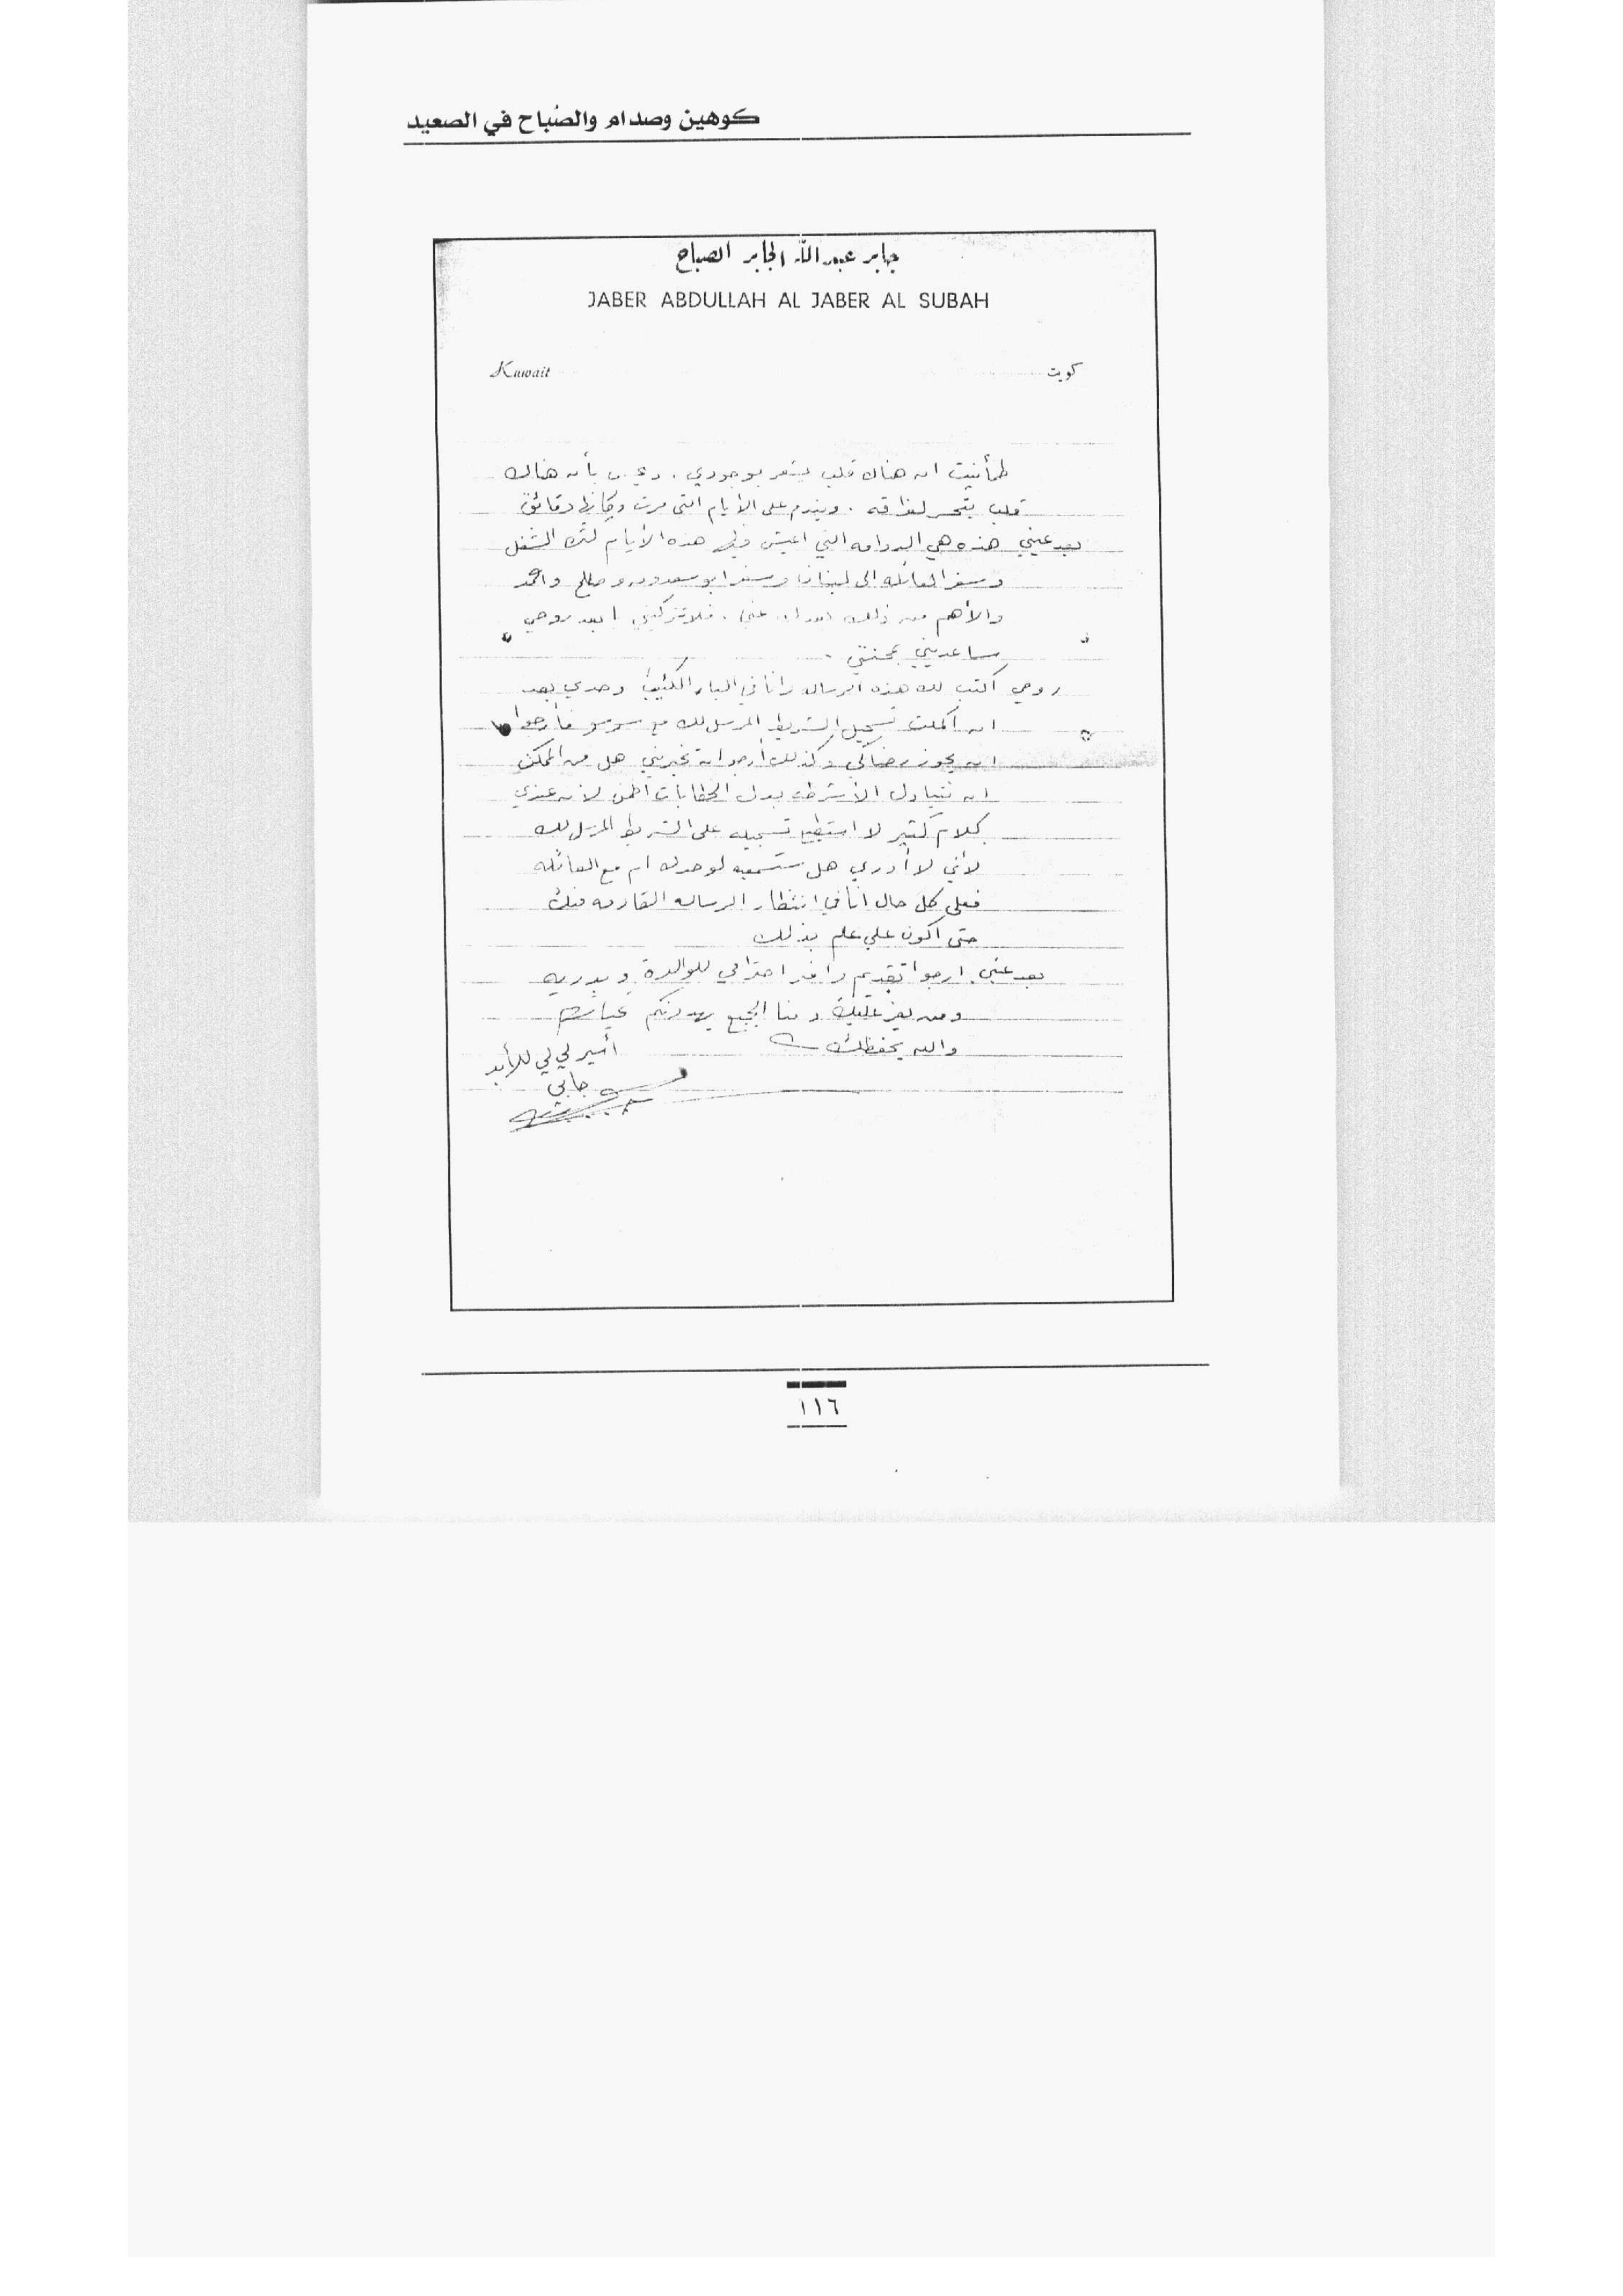 كوهين وصدام والصُباح في الصعيد
جابر عبدالله الجابر الصباح
JABER ABDULLAH AL JABER AL SUBAH
Kuwait
كويت
طمأنيت ان هناك قلب يشعر بوجودي . بأن هناك
قلب يتحسر لفراقه . ويندم على الأيام التي مرت وكانها دقائق
بعد عيني هذه هي الدوامه التي اعيش فيها هذه الأيام الشغل
وسفر العائله الى لبنان وسفر ابو سعدون و واحمد
والأهم من ذلك عني . فلا تتركيني ا بعد روحي
ساعديني بمحنتي .
روحي اكتب لك هذه الرساله وانا في البار الكئيب وحدي بعد
ان اكملت تسجيل الشريط المرسل لك مع سوسو فأرجوا
ان يحوز رضاكي وكذلك أرجو ان تخبريني هل من الممكن
ان نتبادل الأشرطه بدل الخطابات لان عندي
كلام كثير لا استطيع تسجيله على الشريط المرسل لك
لأني لا أدري هل ستسمعيه لوحدك ام مع العائله
فعلى كل حال انا في انتظار الرساله القادمه منك
حتى اكون على علم بذلك
بعد عيني ارجوا تقديم وافر احترامي للوالدة و بدريه
ومن يعز عليك ومنا الجميع يهدونكم
والله يحفظك
أسير لي لي للأبد
جابي
١١٦